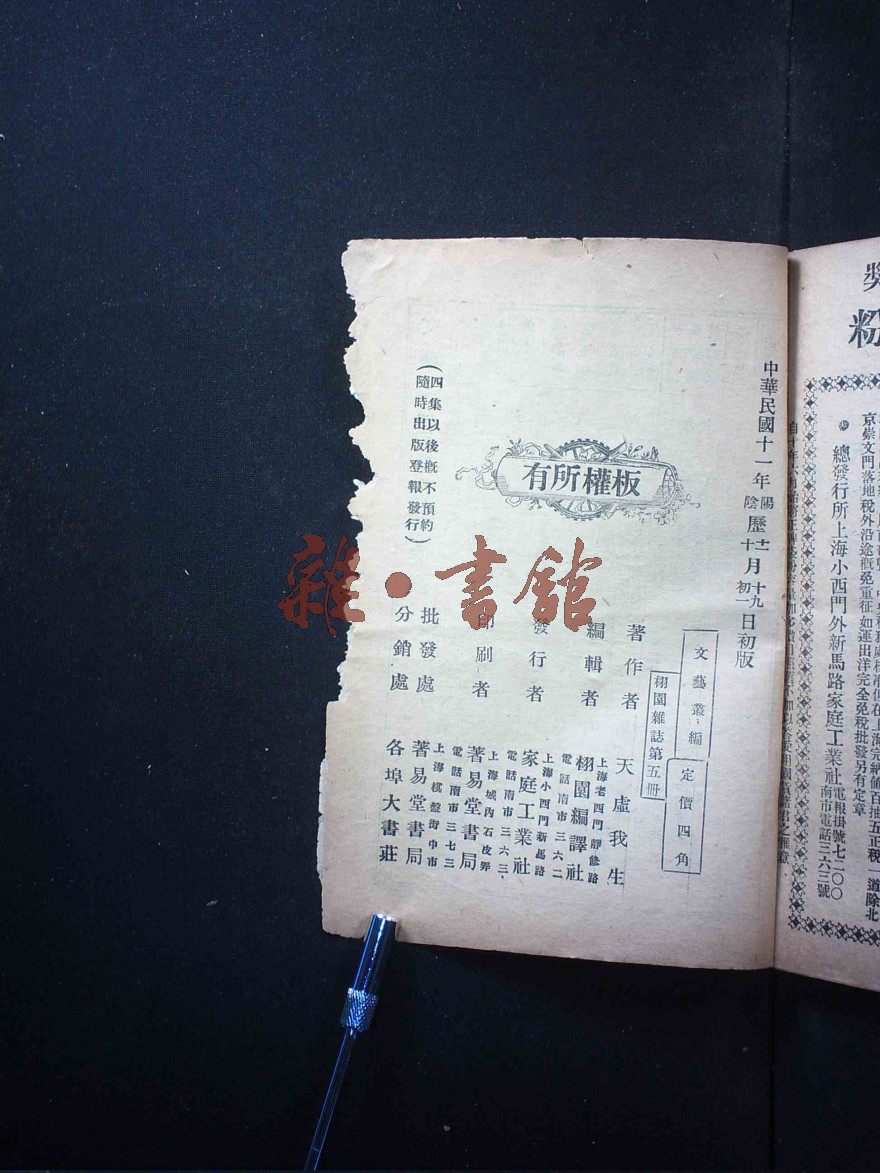 中華民國十一年陽陰歷十二十月十九初一日初版
文藝叢編
定價四角
栩園雜誌第五冊
著作者 天虛我生
編輯者 栩園編譯社
上海老西門靜修路
電話南市三六二
發行者 家庭工業社
上海小西門新馬路
電話南市三六三
印刷者 著易堂書局
上海城內石皮弄
電話南市三七三
批發處 著易堂書局
上海棋盤街中市
分銷處 各埠大書莊
板權所有
(四集以後概不預約
隨時出版登報發行)
雜·書館
粉
京崇文門落地稅外沿途概免重征如運出洋完全免稅批發另有定章
總發行所上海小西門外新馬路家庭工業社電報掛號七二〇〇南市電話三六三號